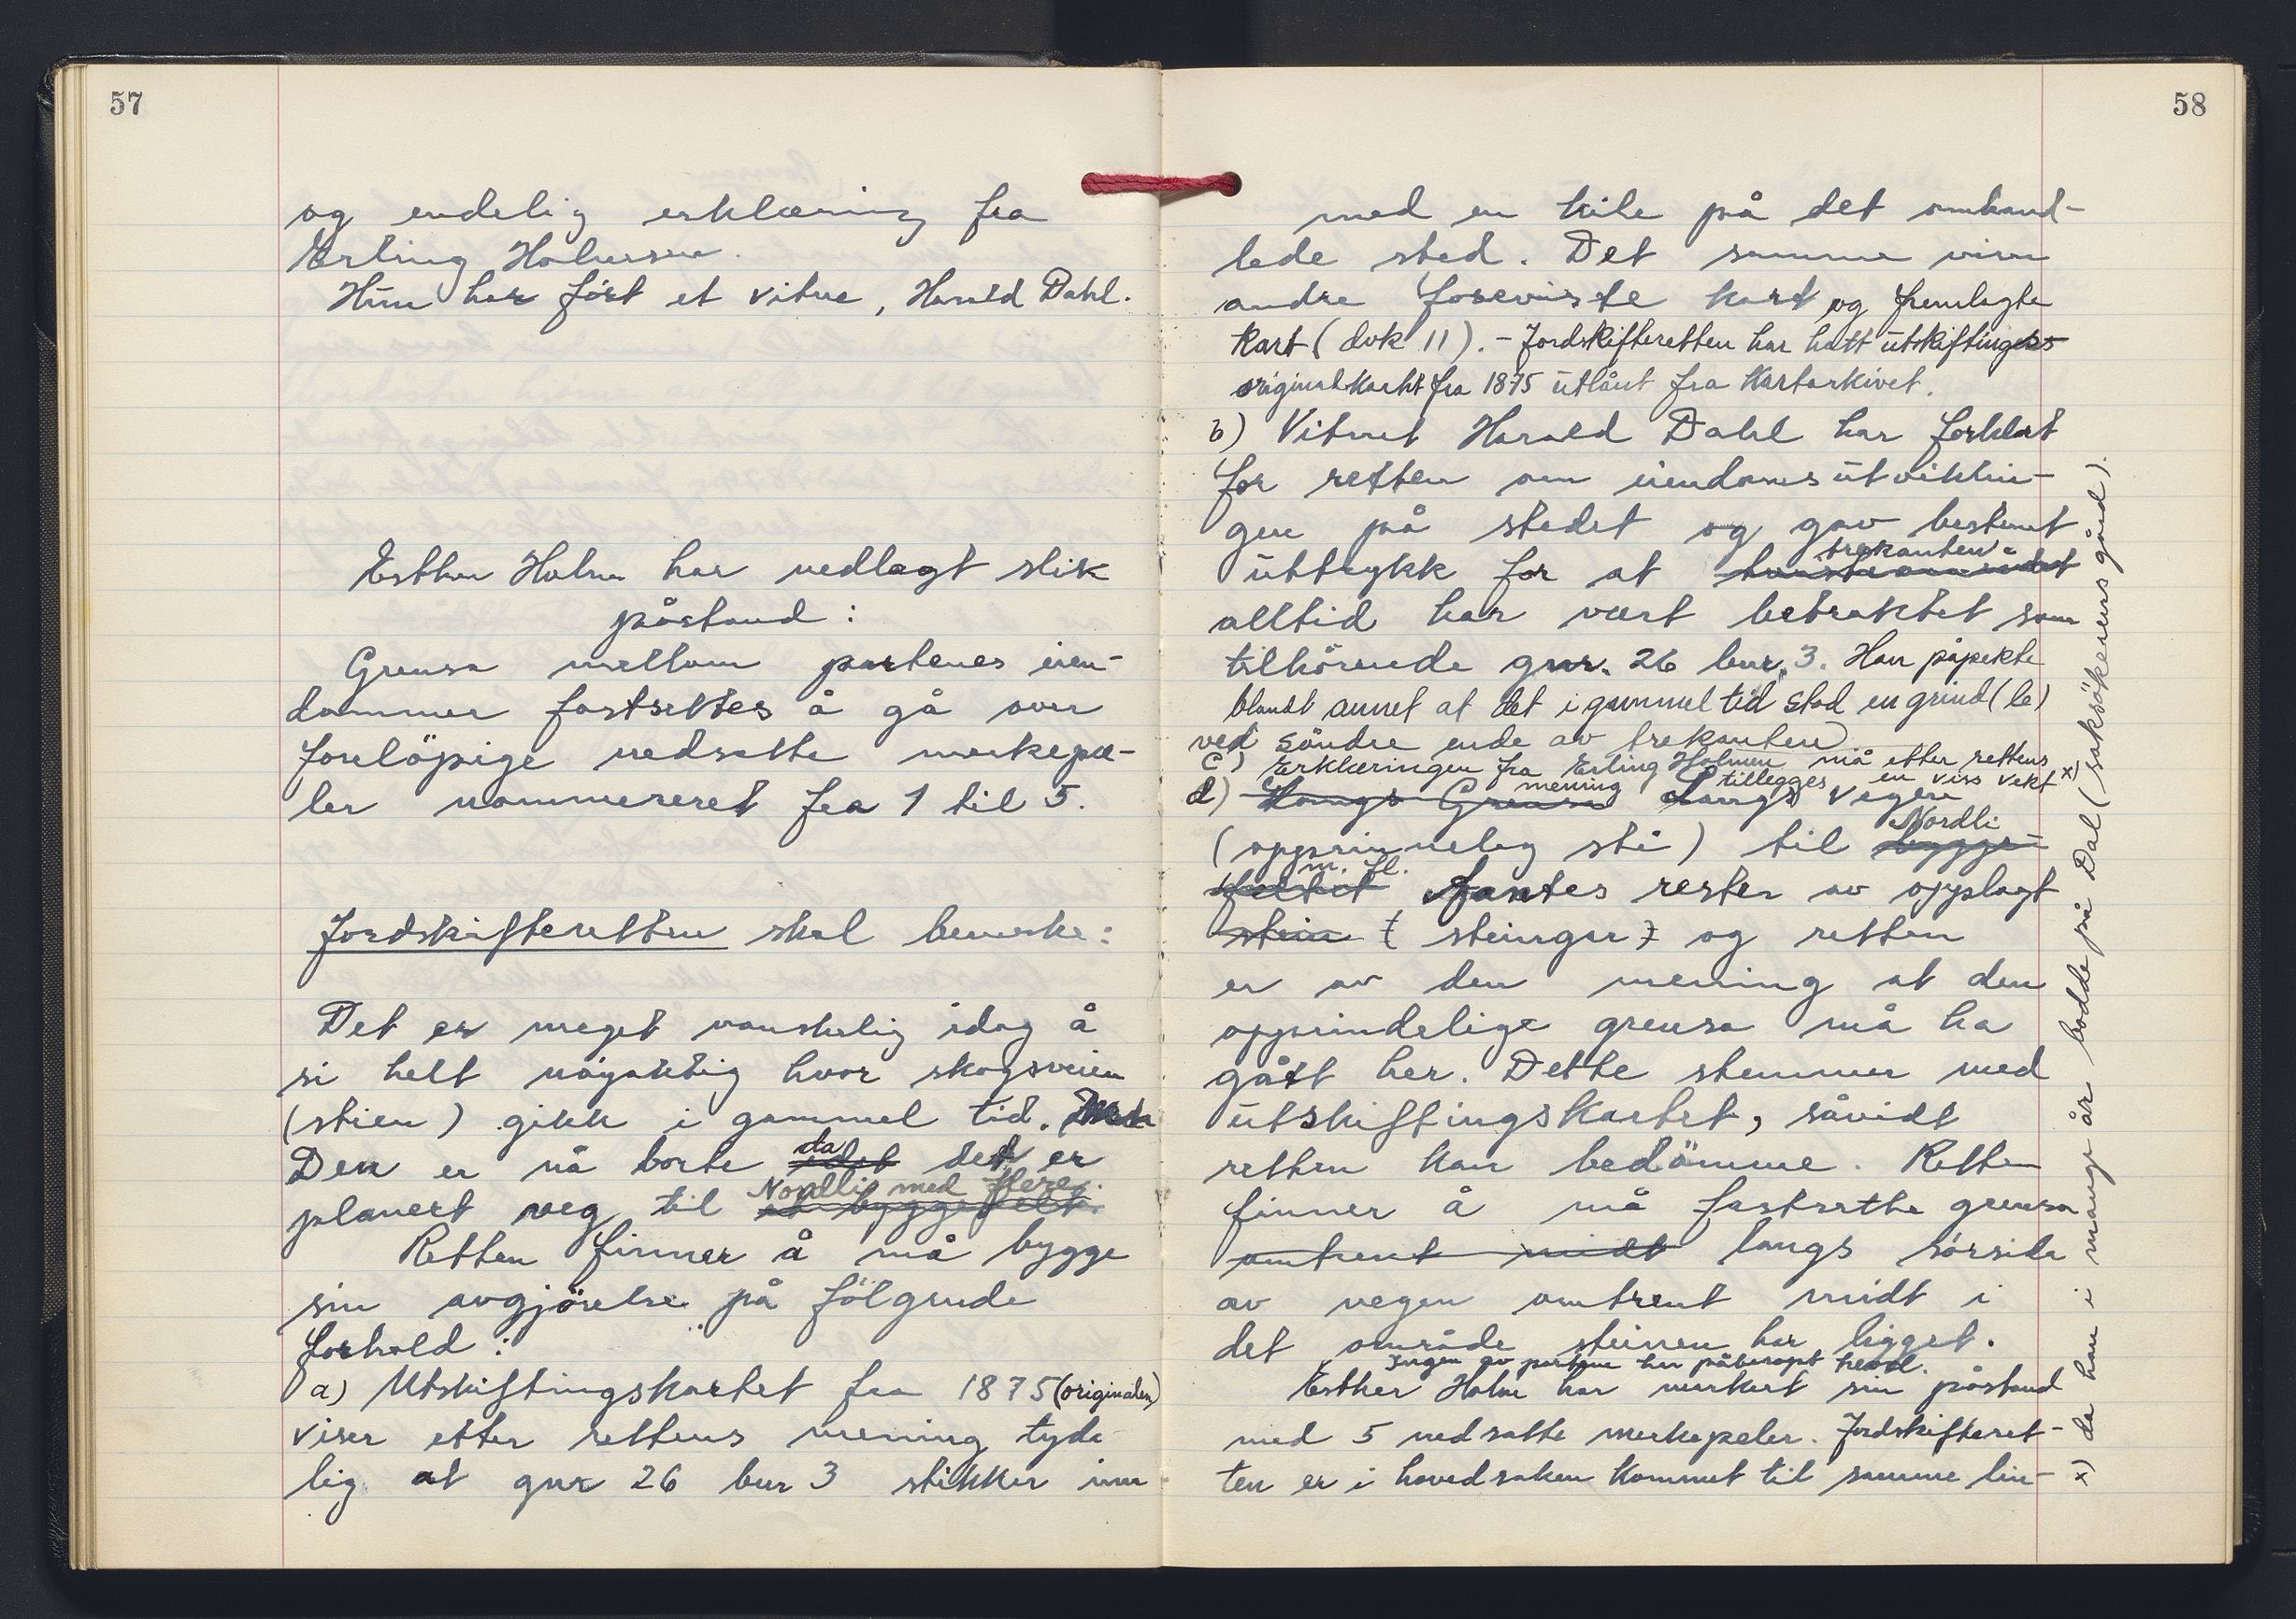 57
og endelig erklæring fra
Erling Holmsen.
Hun har ført et vitne, Harald Dahl.
Esther Holm har nedlagt slik
påstand :
Grensa mellom partenes eien-
dommer fastsettes å gå over
forelöpige nedsatte merkepæ-
ler nommereret fra 1 til 5.
Jordskifteretten skal bemerke:
Det er meget vanskelig idag å
si helt nöyaktig hvor skogsveien
(stien) gikk i gammel tid.
Den er nå borte da det er
planert veg til Nordli med flere.
Retten finner å må bygge
sin avgjörelse på fölgende
forhold :
a) Utskiftingskartet fra 1875 (originalen)
viser etter rettens mening tyde
lig at gnr 26 bnr 3 stikker inn
58
med en kile på det omhand-
lede sted. Det samme viser
andre foreviste kart og fremlagte
kart (dok 11). - Jordskifteretten har hatt utskiftings
originalkartet fra 1875 utlånt fra Kartarkivet.
b) Vitnet Harald Dahl har forklart
for retten om eiendomsutviklin-
gen på stedet og gav bestemt
uttrykk for at "trekanten"
alltid har vært betraktet som
tilhörende gnr. 26 bnr. 3. Han påpekte
blandt annet at det i gammel tid stod en grind (le)
ved söndre ende av trekanten
c) Erklæringen fra Erling Holmen må etter rettens
mening tillegges en viss vekt x)
d) Langs vegen
(opprinnelig sti) til Nordli
m. fl. fantes rester av opplagt
steingar og retten
er av den mening at den
opprindelige grensa må ha
gått her. Dette stemmer med
utskiftingskartet, såvidt
retten kan bedömme. Retten
finner å må fastsette grensa
omtrent midt langs sörsida
av vegen omtrent midt i
det område steinen har ligget.
Ingen av partene har påberopt hevd.
Esther Holm har merkert sin påstand
med 5 nedsatte merkepeler. Jordskifteret-
ten er i hovedsaken kommet til samme lin-
x) da han i mange år bodde på Dal (saksökerens gård).